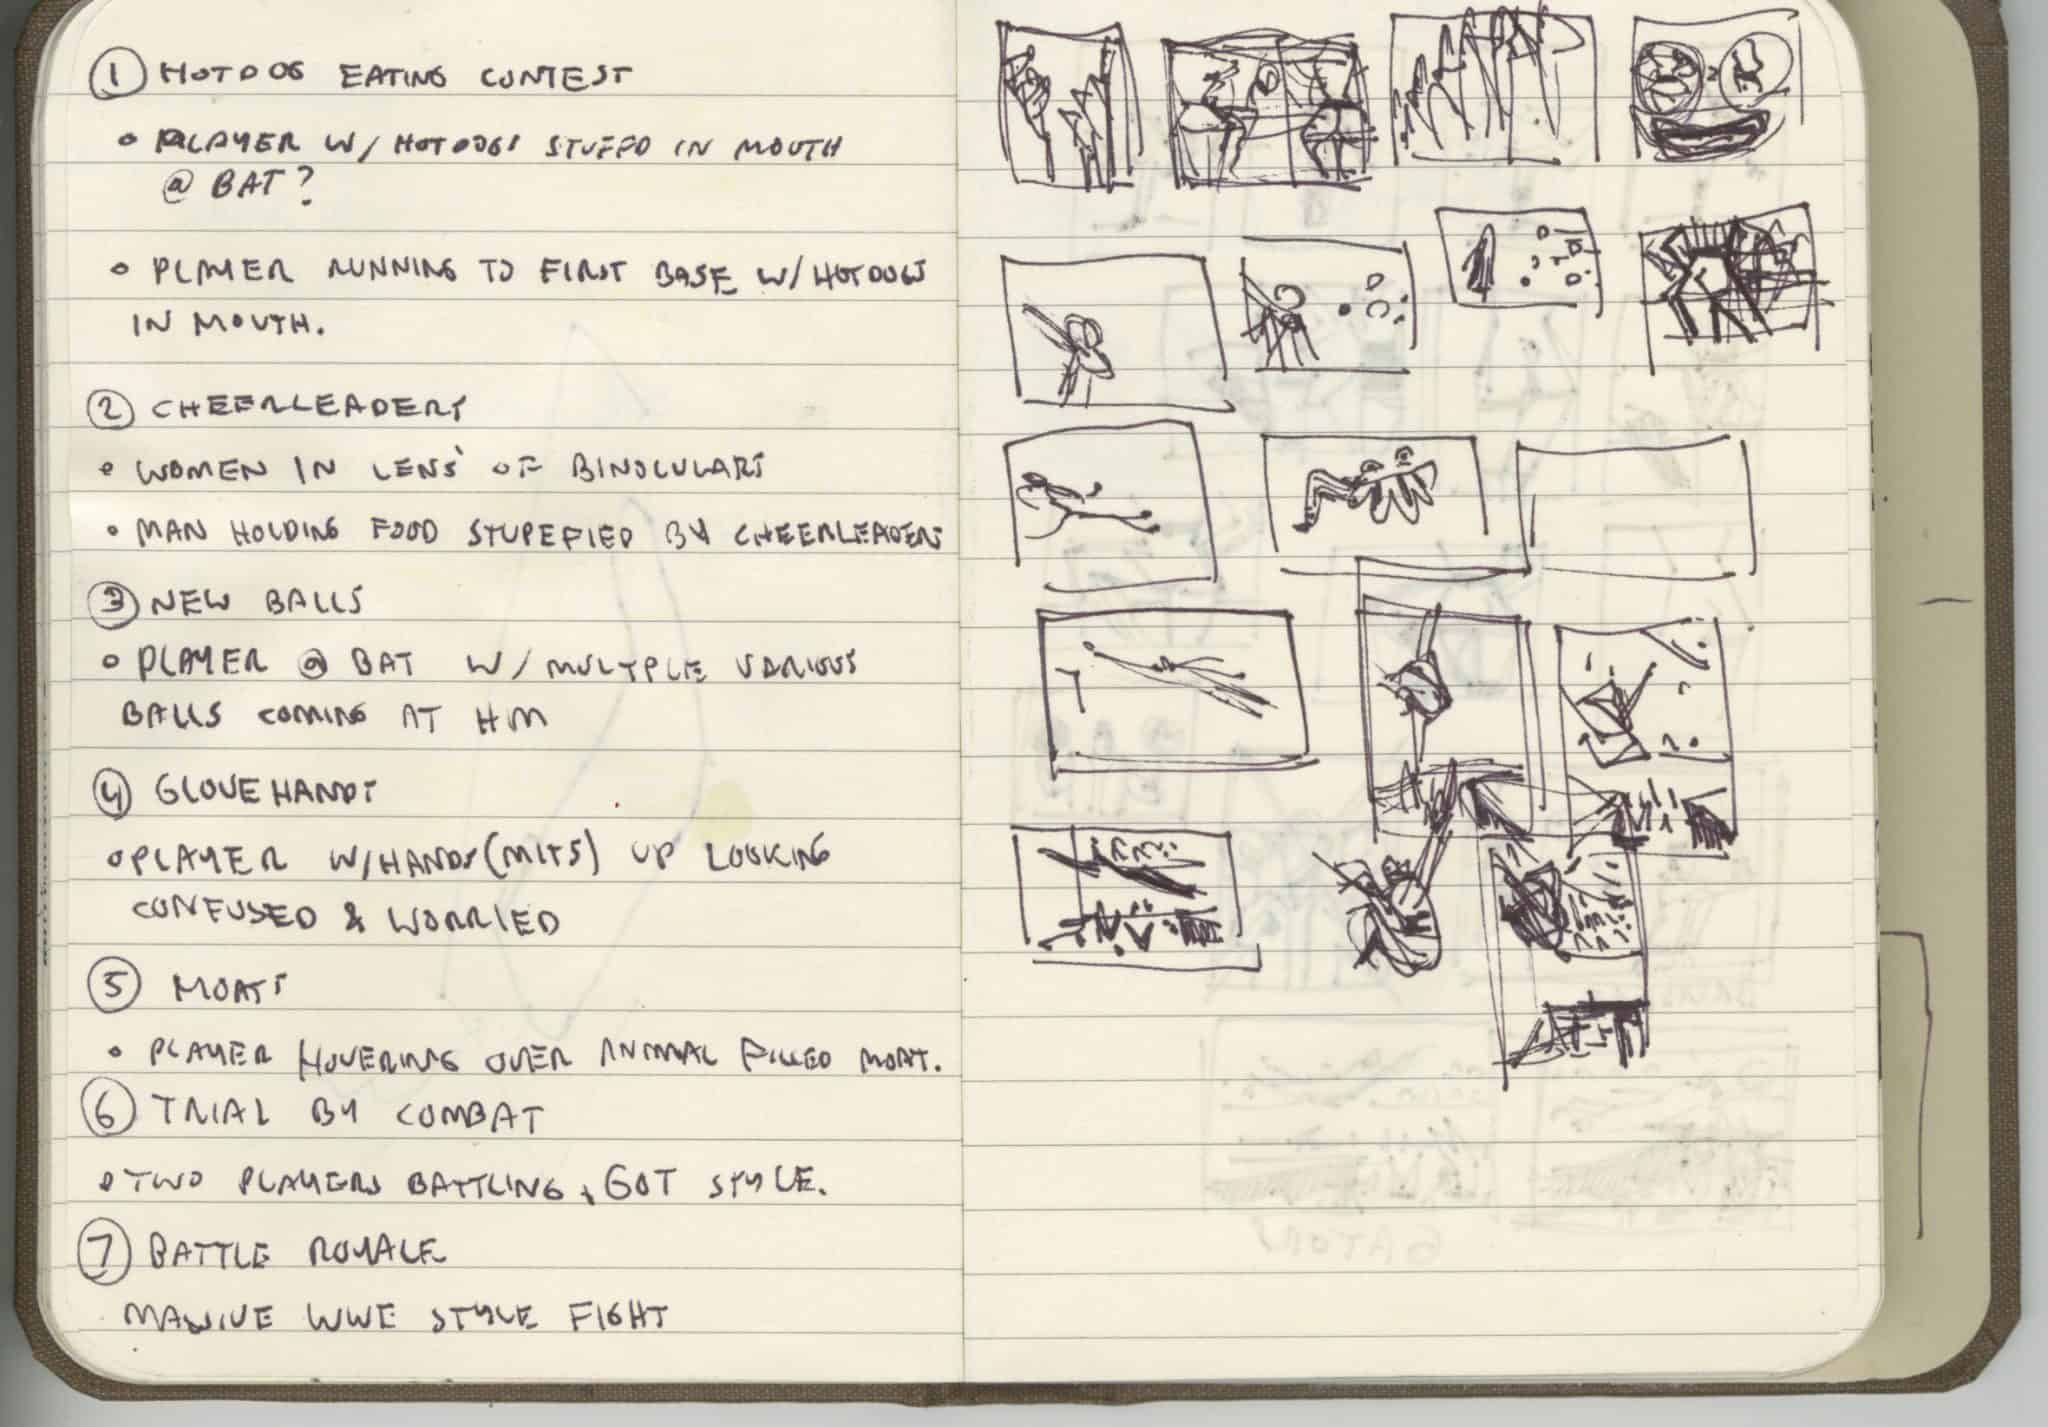 1 HOTDOG EATING CONTEST
• PLAYER W/ HOTDOGS STUFFD IN MOUTH
@ BAT?
• PLAYER RUNNING TO FIRST BASE W/ HOTDOGS
IN MOUTH.
2 CHEERLEADERS
• WOMEN IN LENS' OF BINOCULARS
• MAN HOLDING FOOD STUPEFIED BY CHEERLEADERS
3 NEW BALLS
• PLAYER @ BAT W/ MULTPLE VARIOUS
BALLS COMING AT HIM
4 GLOVE HANDS
• PLAYER W/HANDS (MITS) UP LOOKING
CONFUSED & WORRIED
5 MOATS
• PLAYER HOVERING OVER ANIMAL FILLED MOAT.
6 TRIAL BY COMBAT
• TWO PLAYERS BATTLING, GOT STYLE.
7 BATTLE ROYALE
MASSIVE WWE STYLE FIGHT
GATORS